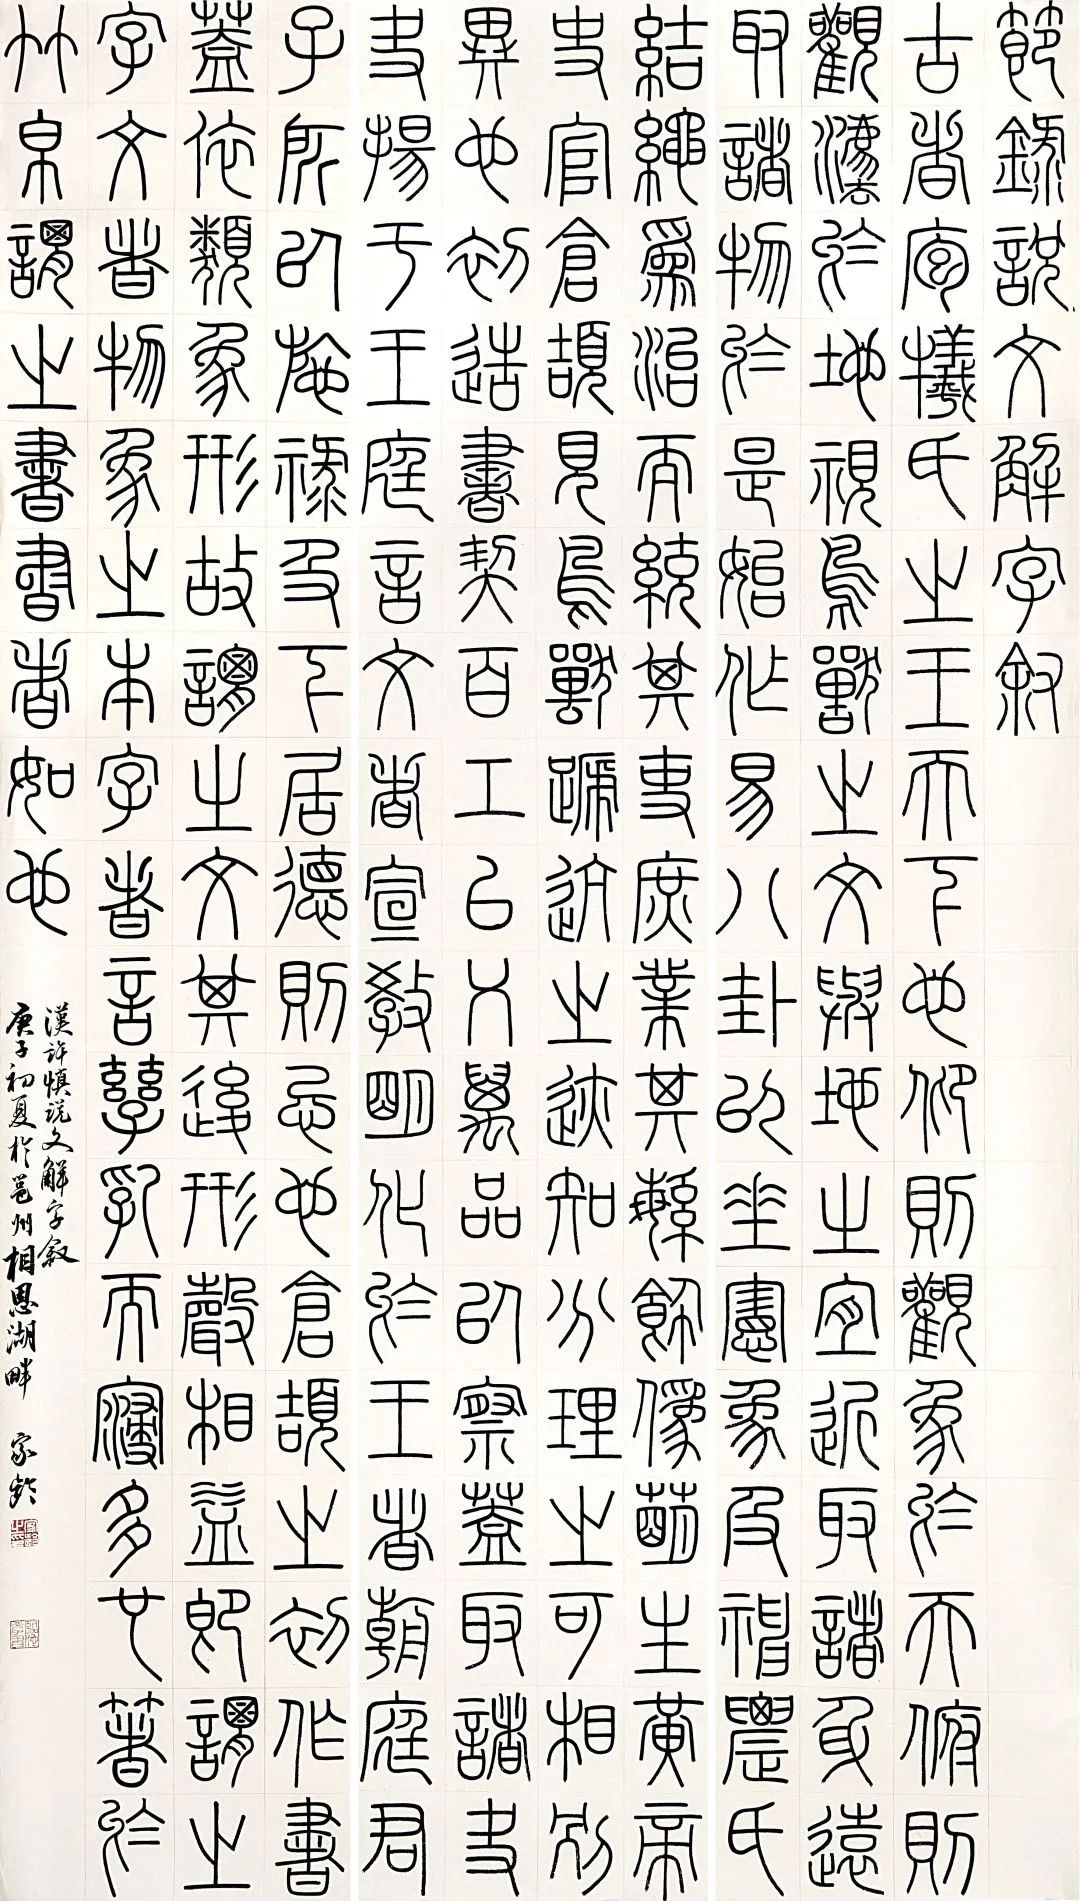 節錄說文解字敘
古者庖犧氏之王天下也仰則觀象於天俯則
觀灋於地視鳥獸之文與地之宜近取諸身遠
取諸物於是始作易八卦以垂憲象及神農氏
結繩爲治而統其事庶業其繁飾僞萌生黃帝
史官倉頡見鳥獸蹏迒之迹知分理之可相別
異也初造書契百工以乂萬品以察蓋取諸夬
夬揚于王庭言文者宣教明化於王者朝庭君
子所以施祿及下居德則忌也倉頡之初作書
蓋依類象形故謂之文其後形聲相益即謂之
字文者物象之本字者言孳乳而寖多也著於
竹帛謂之書書者如也
漢許慎說文解字敘
庚子初夏於邕州相思湖畔 家齡